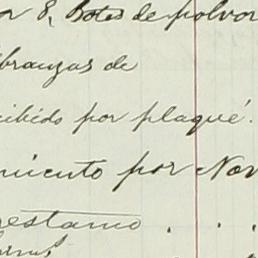 8, Botes de polvor
branzas de
cibido por plaqué.
miento por Nov
restamo . . .